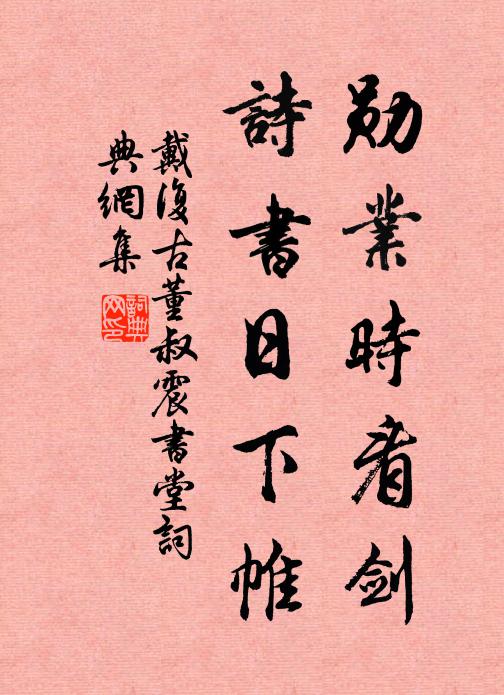 勋業時看剑
詩書日下帷
戴復古董叔震書堂詞
典網集
詞典网印